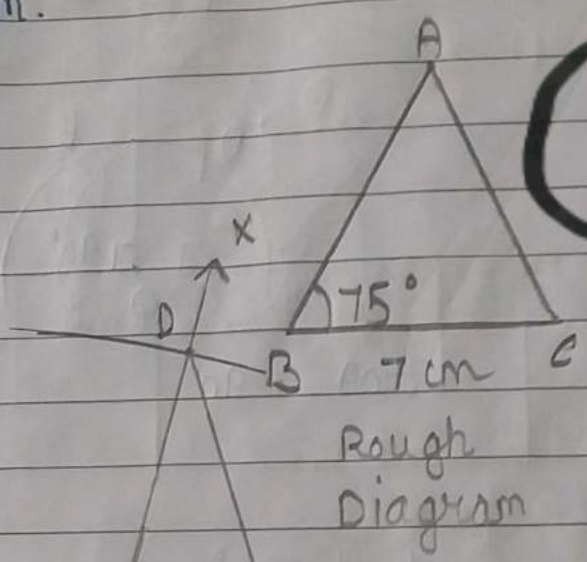 A
X
75°
D
B
7 cm
C
Rough
Diagram